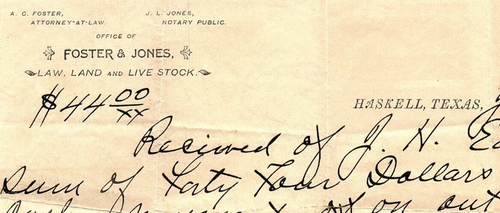 A. C. FOSTER, J. L. JONES,
ATTORNEY-AT-LAW. NOTARY PUBLIC.
OFFICE OF
FOSTER & JONES,
LAW, LAND AND LIVE STOCK.
$44 00/xx HASKELL, TEXAS,
Recieved of J. H.
Sum of Forty Four Dollars
on out